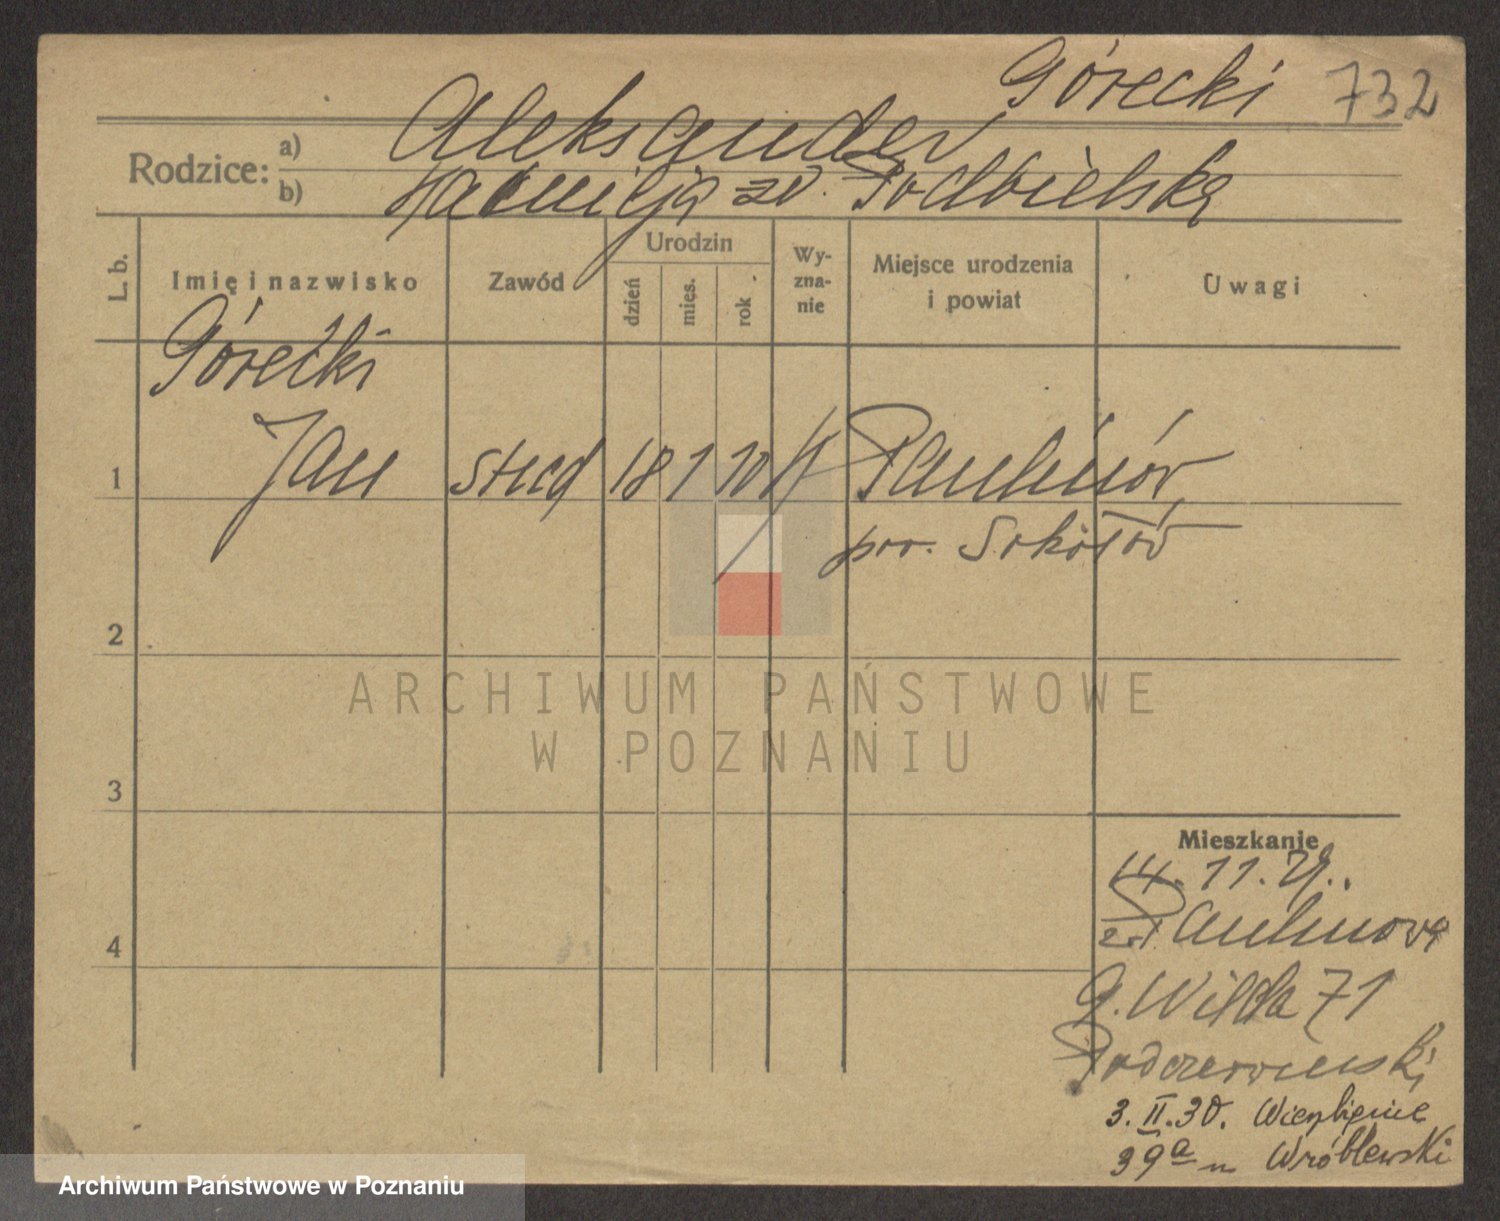 Górecki 732
Rodzice: a) Aleksander
b) zd. Podbielska
L. b.
Imię i nazwisko
Zawód
Urodzin
dzień
mies.
rok
Wy-
zna-
nie
Miejsce urodzenia
i powiat
Uwagi
Górecki
1 Jan stud 18 1 10 Paulinów
pow. Sokołów
2
3
4
Mieszkanie
14. 11. 29.
Paulinowa
G. Wilda 71
Podczerwinski
3. II. 30. Wierzbięcice
39a Wróblewski
ARCHIWUM PAŃSTWOWE
W POZNANIU
Archiwum Państwowe w Poznaniu